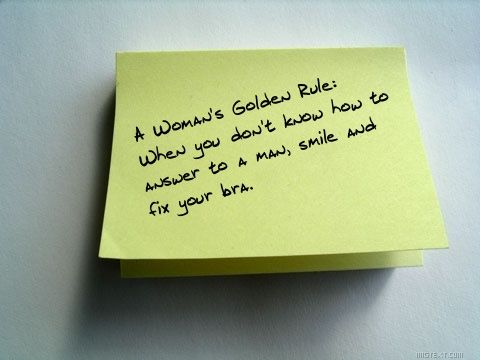 A Woman's Golden Rule:
When you don't know how to
answer to a man, smile and
fix your bra.
IMGTEXT.COM